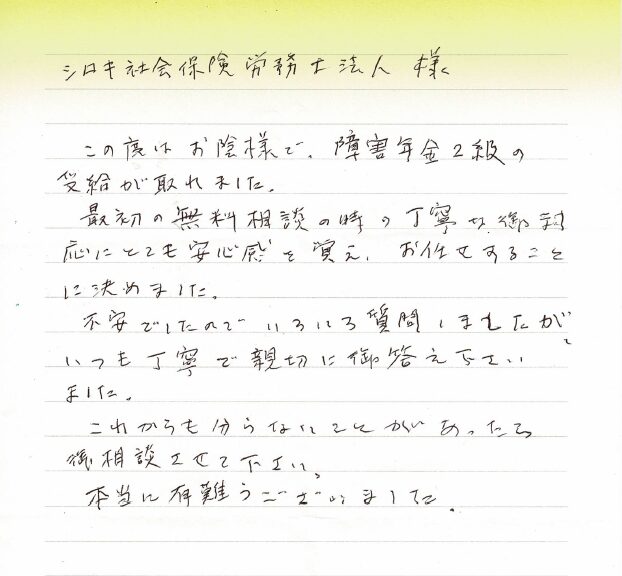 シロキ社会保険労務士法人 様
この度はお陰様で、障害年金2級の
受給が取れました。
最初の無料相談の時の丁寧な御対
応にとても安心感を覚え、お任せすること
に決めました。
不安でしたのでいろいろ質問しましたが、
いつも丁寧で親切に御答え下さい
ました。
これからも分らないことがあったら
御相談させて下さい。
本当に有難うございました。